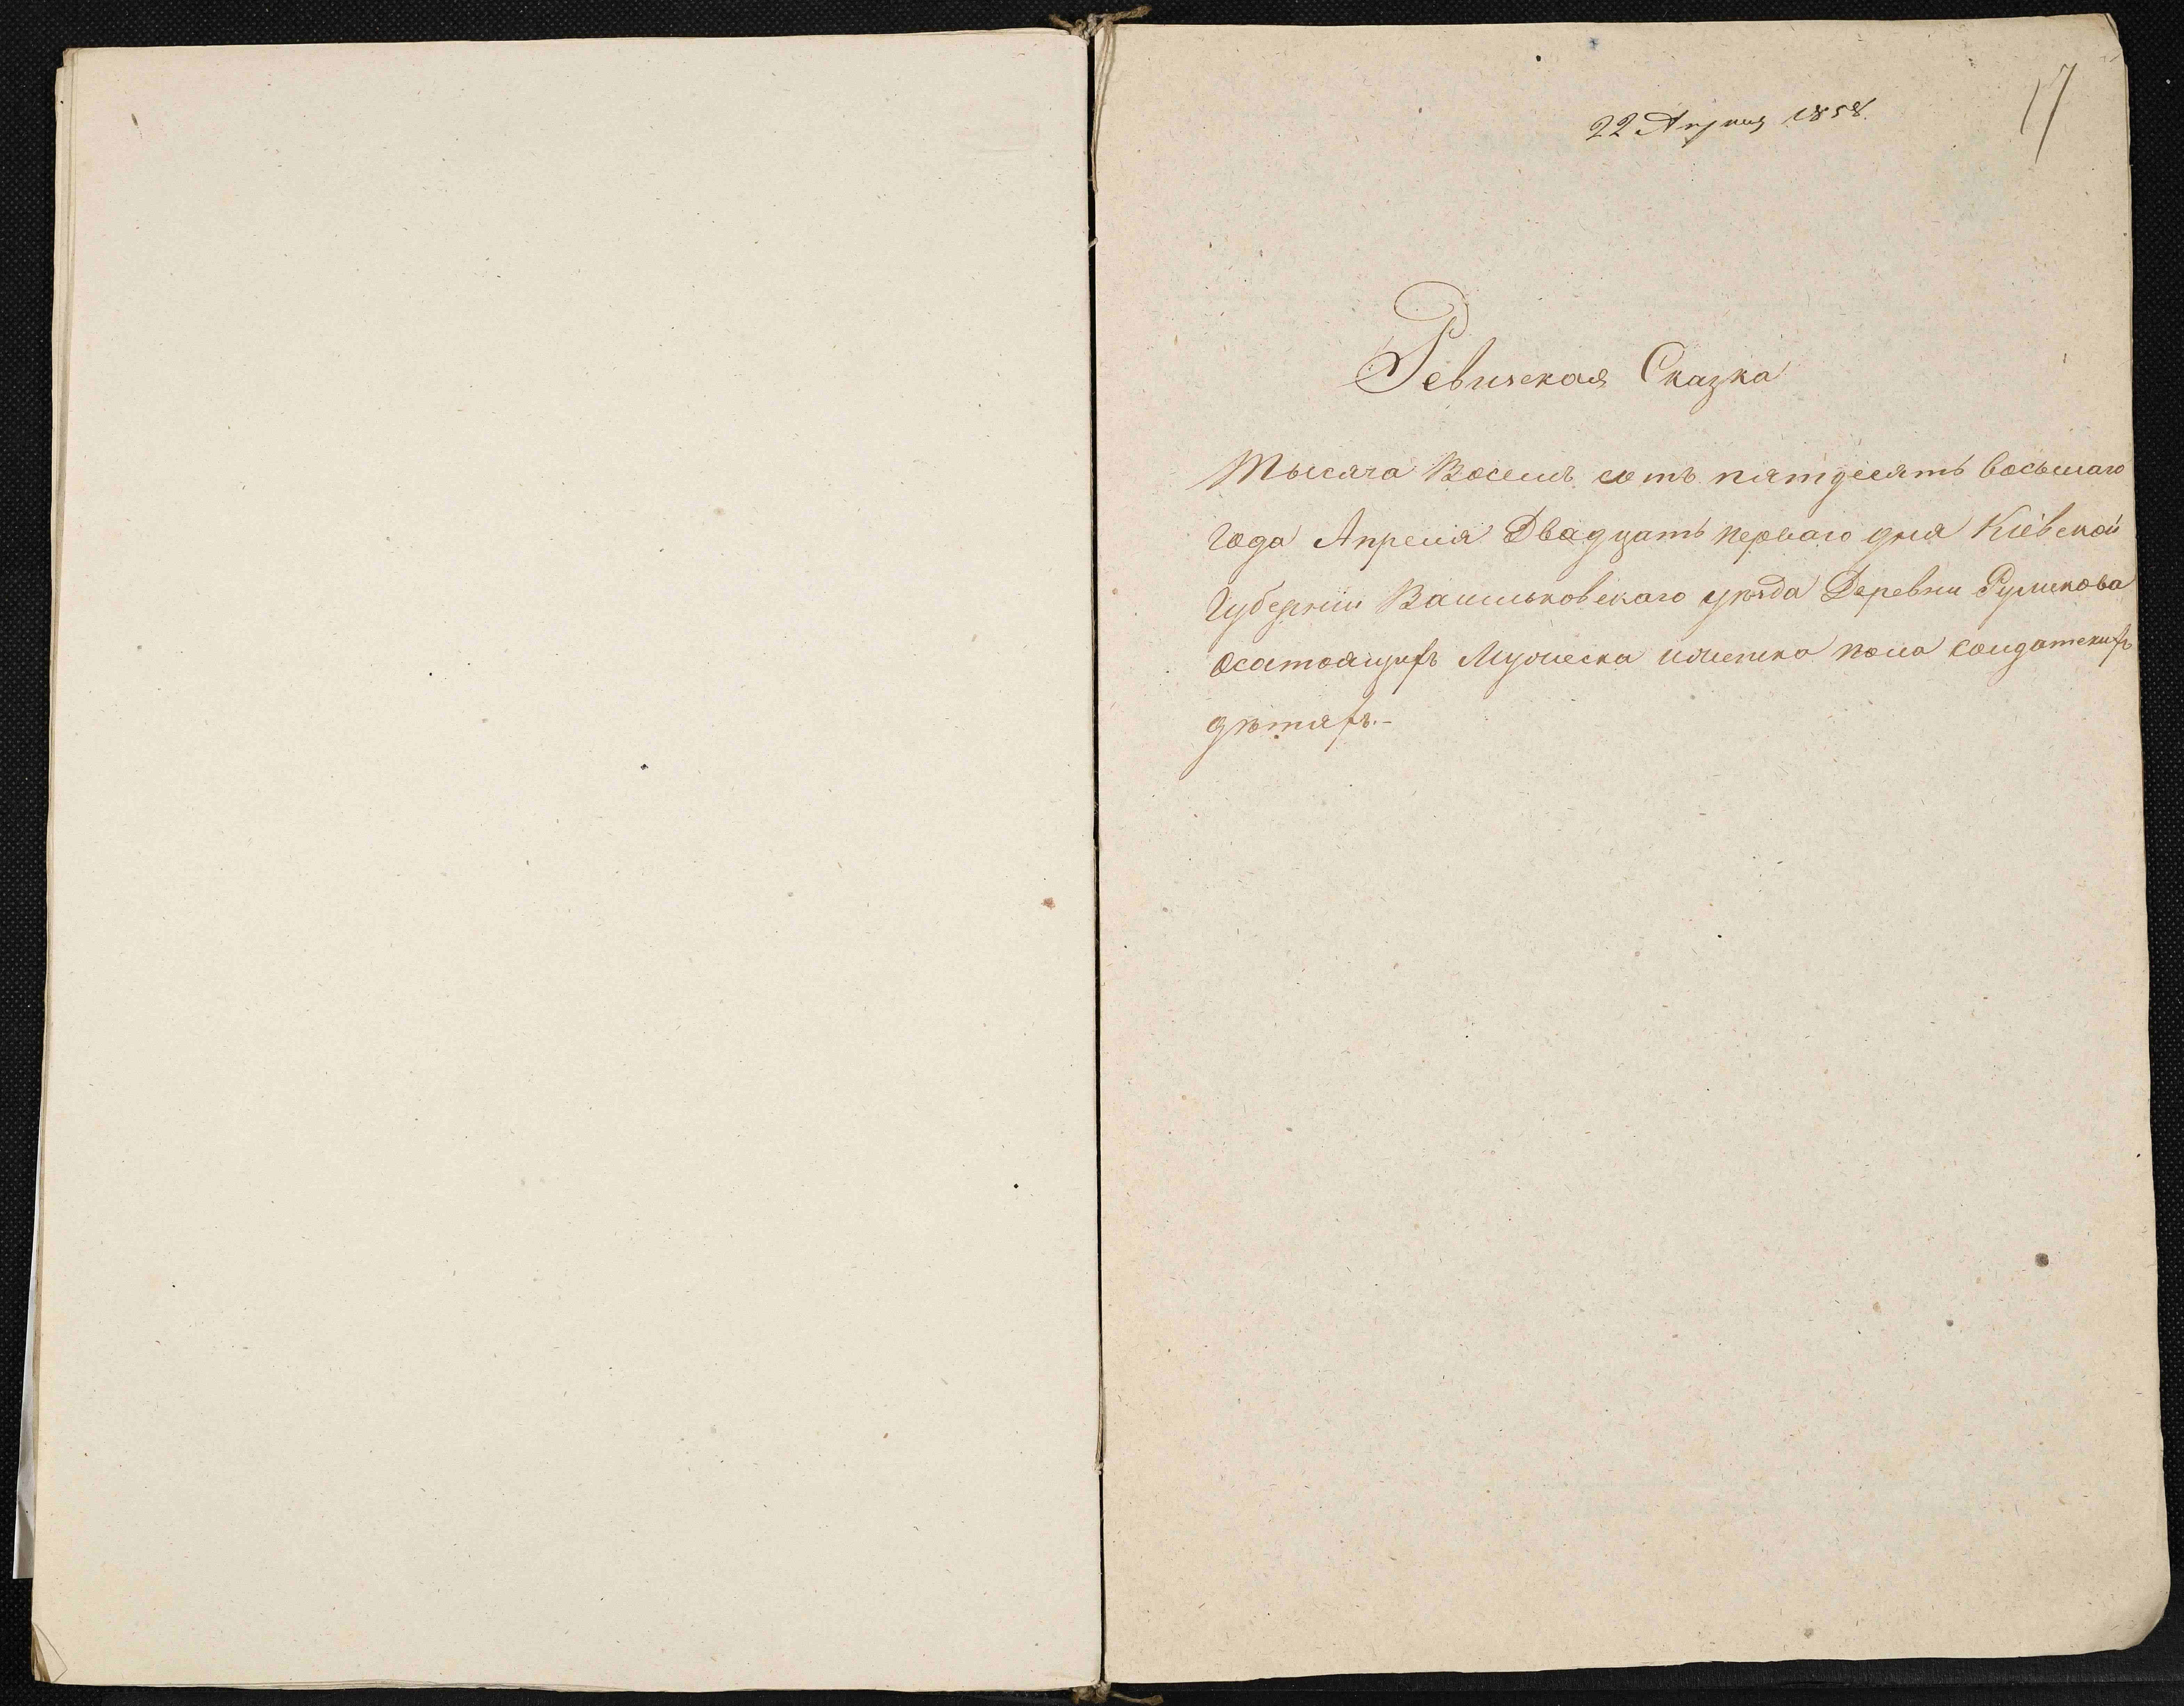 22 Апреля 1858.
17
Ревизская Сказка
Тысяча Восемь сотъ пятдесятъ восьмаго
года Апреля Двадцать перваго дня Кіевской
Губерніи Васильковскаго уѣзда Деревни Руликова
осостоящихъ Мужеска иженска пола солдатскихъ
дѣтяхъ.-